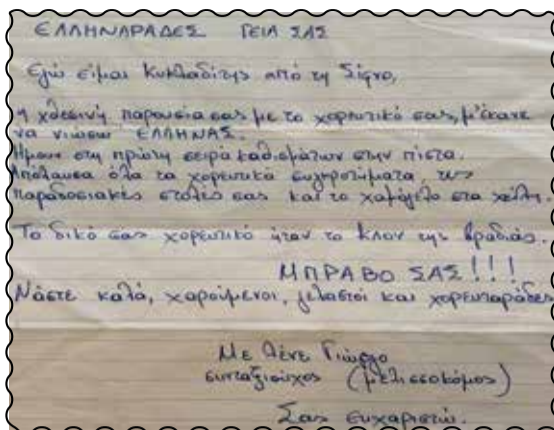 ΕΛΛΗΝΑΡΑΔΕΣ ΓΕΙΑ ΣΑΣ
Εγώ είμαι Κυκλαδίτης από τη Σίφνο,
η χθεσινή παρουσία σας με το χορευτικό σας, μ' έκανε
να νιώσω ΕΛΛΗΝΑΣ.
Ήμουν στη πρώτη σειρά καθισμάτων στην πίστα.
Απόλαυσα όλα τα χορευτικά συγκροτήματα, τις
παραδοσιακές στολές σας και το χαμόγελο στα χείλη.
Το δικό σας χορευτικό ήταν το κλου της βραδιάς.
ΜΠΡΑΒΟ ΣΑΣ!!!
Νάστε καλά, χαρούμενοι, γελαστοί και χορευταράδες
Με λένε Γιώργο
συνταξιούχος (μελισσοκόμος)
Σας ευχαριστώ.